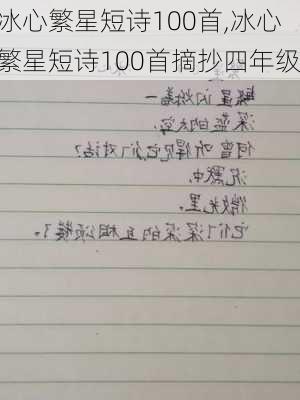 冰心繁星短诗100首,冰心
繁星短诗100首摘抄四年级
繁星闪烁着一
深蓝的太空,
何曾听得见它们对话?
沉默中,
微光里,
它们深深的互相颂赞了。